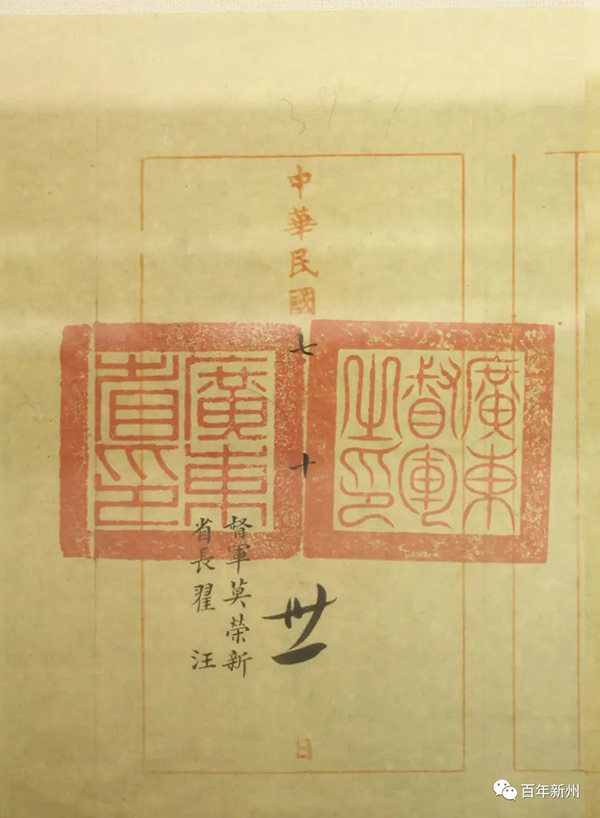 廣東
督軍
之印
中華民國七十卅一日
廣東
省印
督軍莫榮新
省長翟汪
百年新州